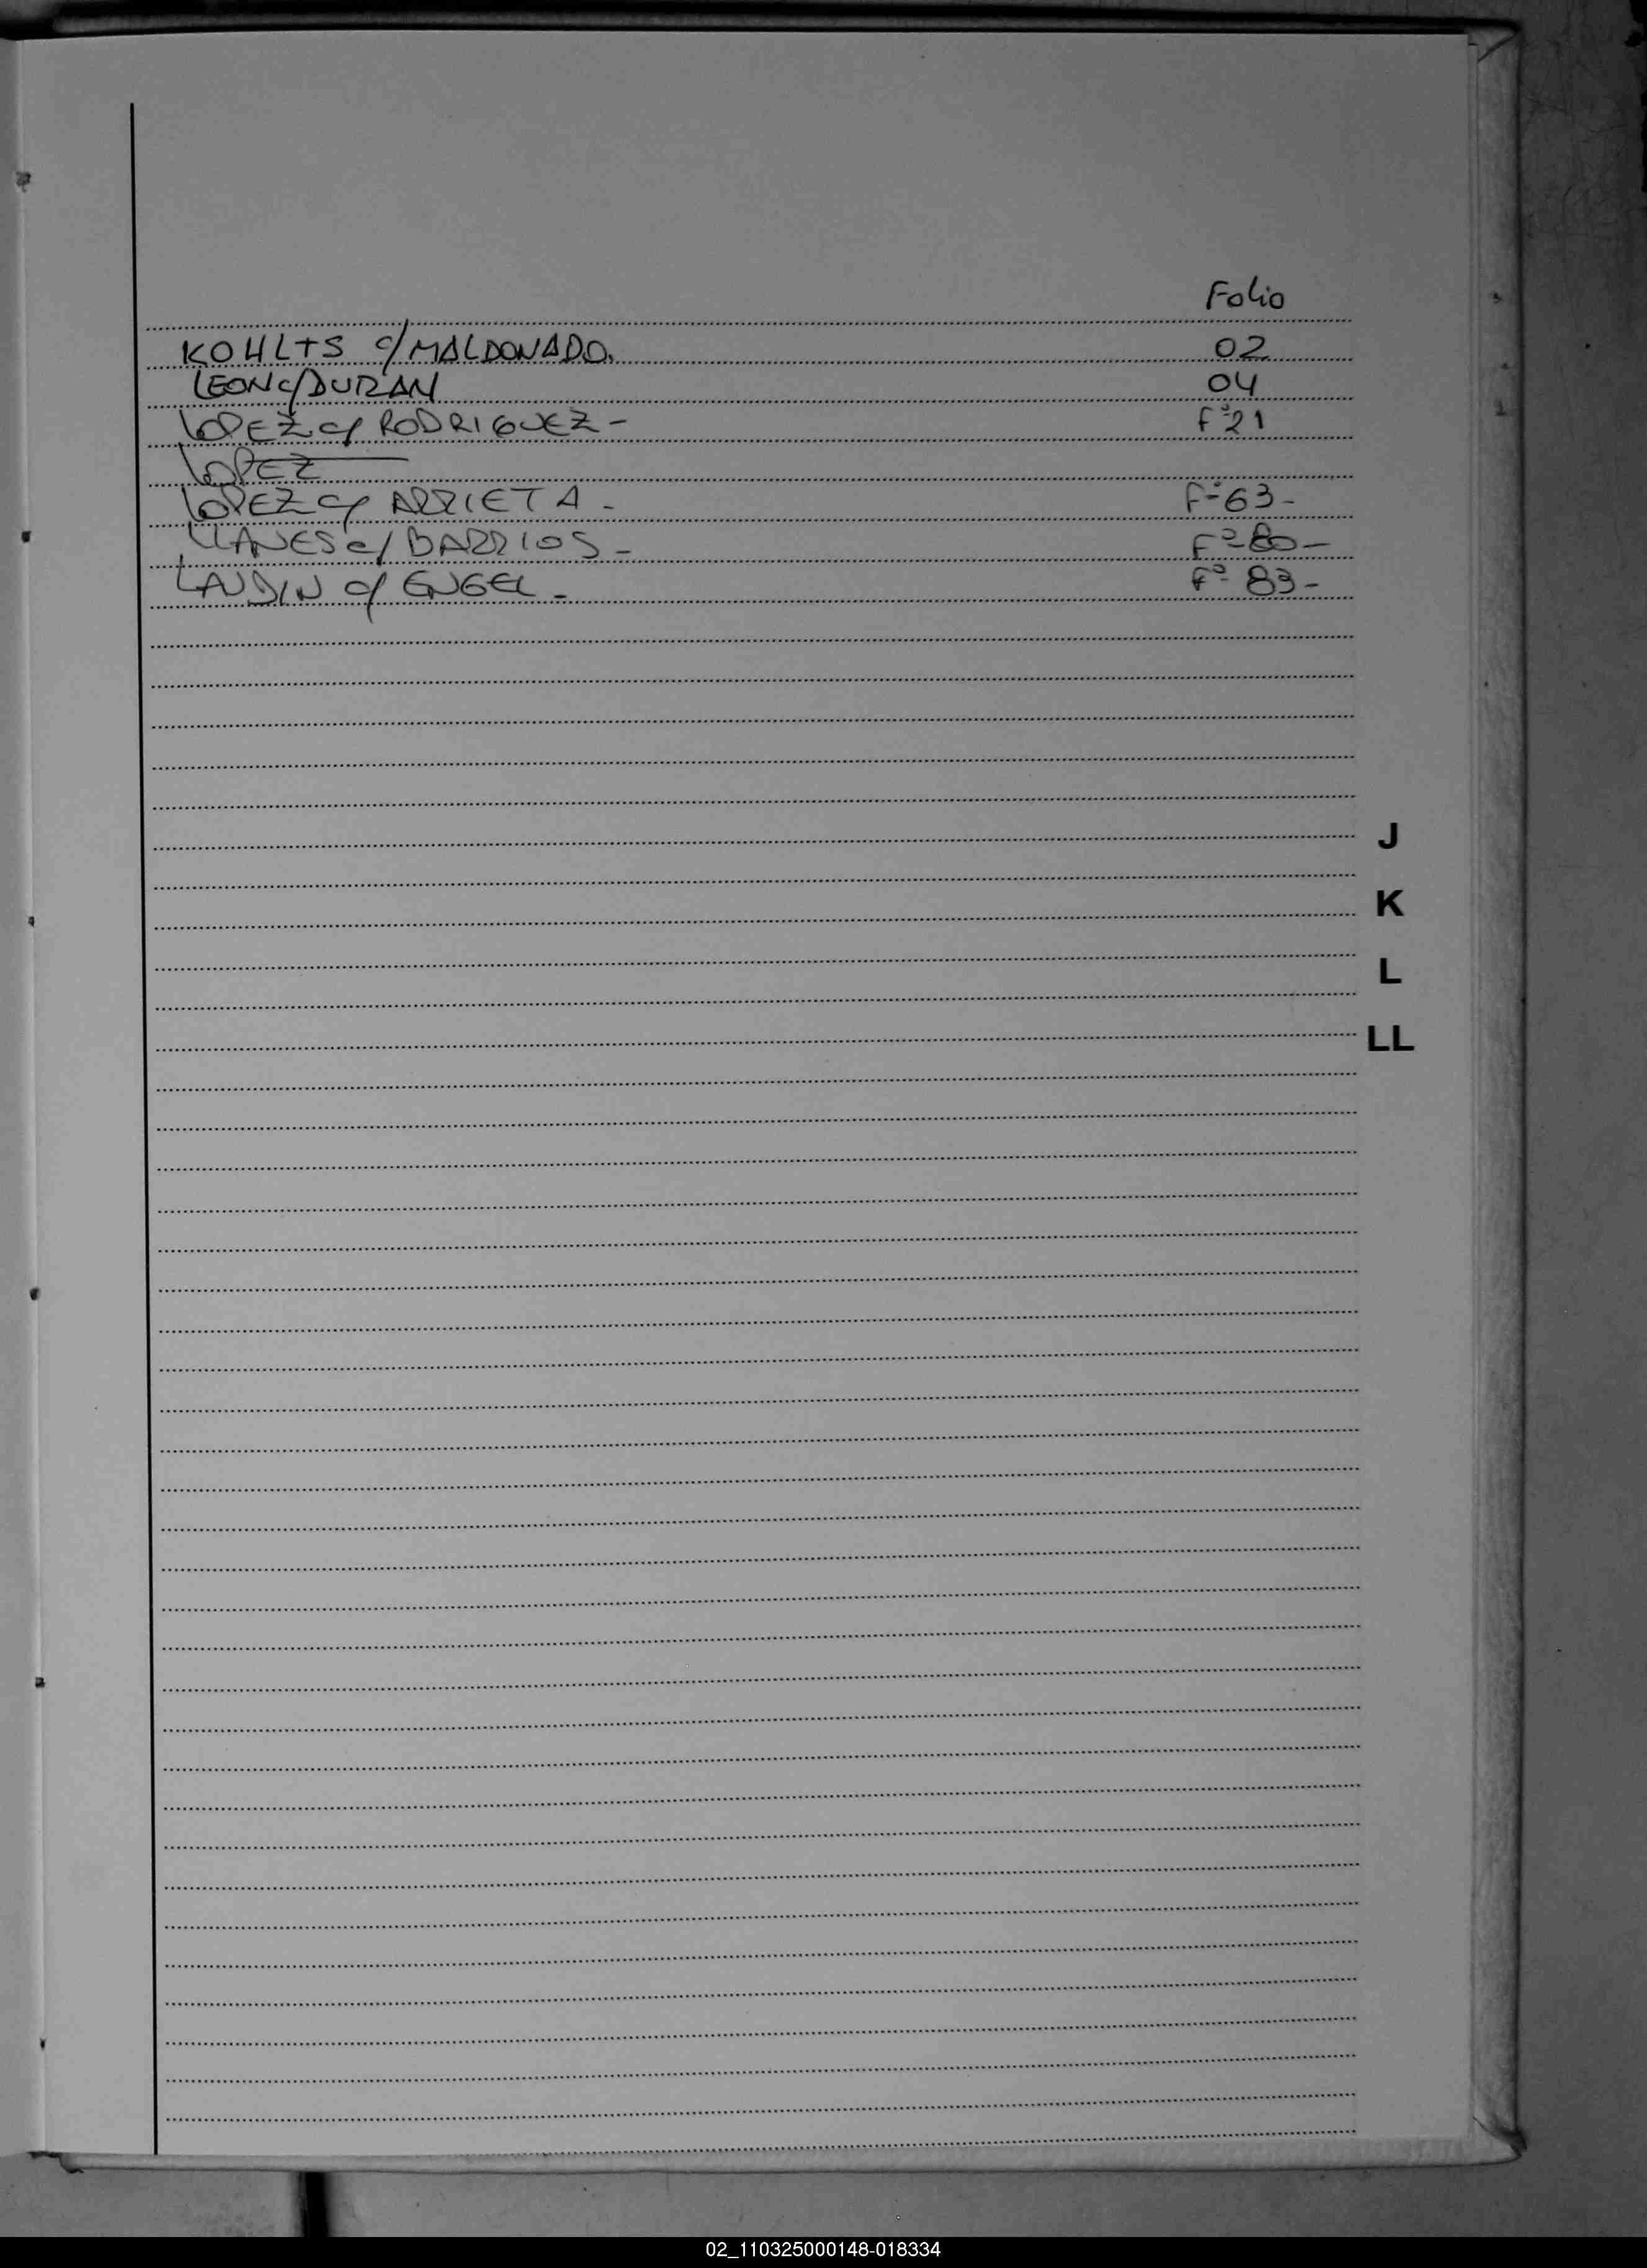 Folio
KOHLTS c/ MALDONADO. 02
LEON c/ DURAN 04
LOPEZ c/ RODRIGUEZ - Fº 21
LOPEZ
LOPEZ c/ ARRIETA - Fº 63 -
LLANES c/ BARRIOS - Fº 80 -
LANDIN c/ ENGEL - Fº 83 -
J
K
L
LL
02_110325000148-018334